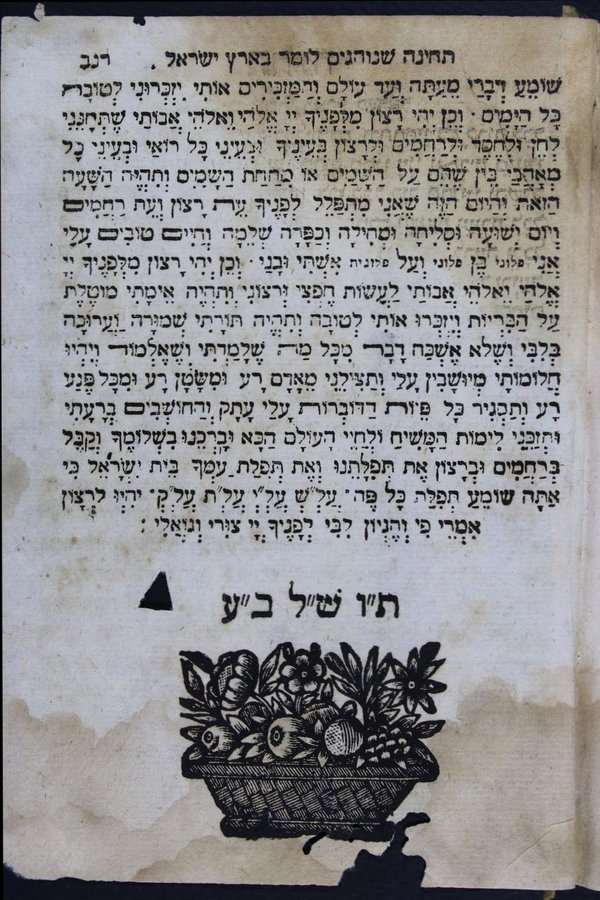 תחינה שנוהגים לומר בארץ ישראל . רנב
שׁוֹמֵעַ דְּבָרַי מֵעַתָּה וְעַד עוֹלָם וְהַמַּזְכִּירִים אוֹתִי יִזְכְּרוּנִי לְטוֹבָה
כָּל הַיָּמִים · וְכֵן יְהִי רָצוֹן מִלְּפָנֶיךָ יְיָ אֱלֹהַי וֵאלֹהֵי אֲבוֹתַי שֶׁתְּחָנֵּנִי
לְחֵן וּלְחֶסֶד וּלְרַחֲמִים וּלְרָצוֹן בְּעֵינֶיךָ וּבְעֵינֵי כָּל רוֹאַי וּבְעֵינֵי כָּל
מְאָהֲבַי בֵּין שֶׁהֵם עַל הַשָּׁמַיִם אוֹ מִתַּחַת הַשָּׁמַיִם וּתְהִיֶּה הַשָּׁעָה
הַזֹּאת וְהַיּוֹם הַזֶּה שֶׁאֲנִי מִתְפַּלֵּל לְפָנֶיךָ עֵת רָצוֹן וְעֵת רַחֲמִים
וְיוֹם יְשׁוּעָה וּסְלִיחָה וּמְחִילָה וְכַפָּרָה שְׁלֵימָה וְחַיִּים טוֹבִים עָלַי
אֲנִי פלוני בֶּן פלוני וְעַל פלונית אִשְׁתִּי וּבָנַי · וְכֵן יְהִי רָצוֹן מִלְּפָנֶיךָ יְיָ
אֱלֹהַי וֵאלֹהֵי אֲבוֹתַי לַעֲשׂוֹת חֶפְצִי וּרְצוֹנִי וּתְהֵיֶה אֵימָתִי מוּטֶלֶת
עַל הַבְּרִיּוֹת וְיִזְכְּרוּ אוֹתִי לְטוֹבָה וּתְהֵיֶה תּוֹרָתִי שְׁמוּרָה וַעֲרוּכָה
בְּלִבִּי וְשֶׁלֹּא אֶשְׁכַּח דָּבָר מִכָּל מַה שֶּׁלָּמַדְתִּי וְשֶׁאֶלְמוֹד וְיִהְיוּ
חֲלוֹמוֹתַי מְיוּשָּׁבִין עָלַי וְתַצִּילֵנִי מֵאָדָם רָע וּמִשָּׂטָן רָע וּמִכָּל פֶּגַע
רָע וְתַסְגִּיר כָּל פִּיּוֹת הַדּוֹבְרוֹת עָלַי עָתָק וְהַחוֹשְׁבִים בְּרָעָתִי
וּתְזַכֵּנִי לִימוֹת הַמָּשִׁיחַ וּלְחַיֵּי הָעוֹלָם הַבָּא וּבָרְכֵנוּ בִּשְׁלוֹמֶךָ וְקַבֵּל
בְּרַחֲמִים וּבְרָצוֹן אֶת תְּפִלָּתֵנוּ וְאֶת תְּפִלַּת עַמְּךָ בֵּית יִשְׂרָאֵל כִּי
אַתָּה שׁוֹמֵעַ תְּפִלָּה כָּל פֶּה · יִהְיוּ לְרָצוֹן
אִמְרֵי פִי וְהֶגְיוֹן לִבִּי לְפָנֶיךָ יְיָ צוּרִי וְגוֹאֲלִי :
ת״ו ש״ל ב״ע